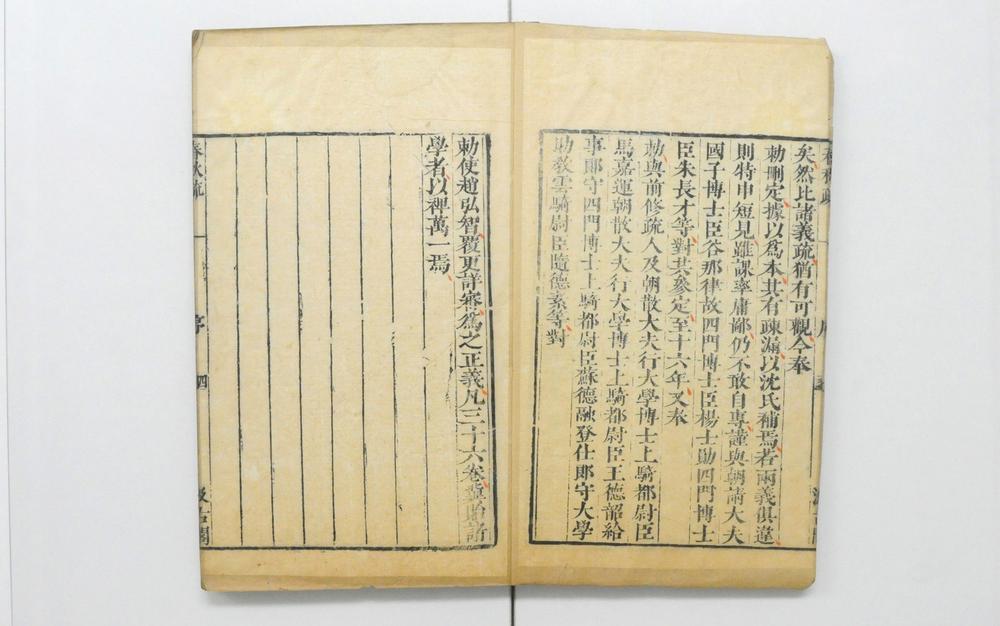 矣然比諸義疏猶有可觀今奉
勅刪定據以爲本其有疎漏以沈氏補焉若兩義俱違
則特申短見雖課率庸鄙仍不敢自專謹與朝請大夫
國子博士臣谷那律故四門博士臣楊士勛四門博士
臣朱長才等對共參定至十六年又奉
勅與前修疏人及朝散大夫行大學博士上騎都尉臣
馬嘉運朝散大夫行大學博士上騎都尉臣王德韶給
事郎守四門博士上騎都尉臣蘇德融登仕郎守大學
助敎雲騎尉臣隨德素等對
勅使趙弘智覆更詳審爲之正義凡三十六卷冀貽諸
學者以裨萬一焉
春秋疏
序
四
汲古閣